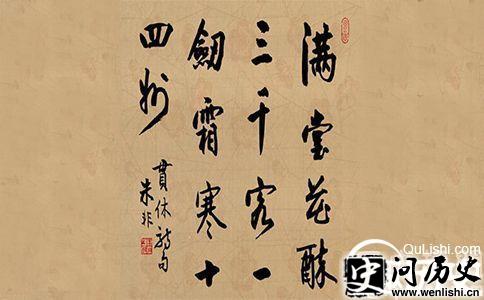 滿堂花醉
三千客一
劍霜寒十
四州
貫休詩句
朱非
QuLishi.com
史问历史
www.wenlishi.cn